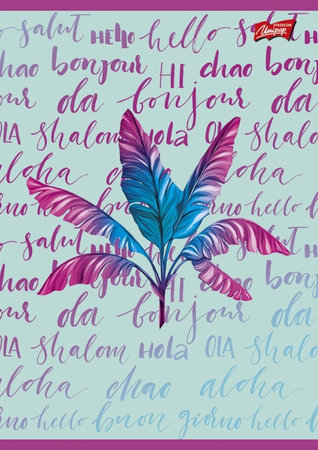 STREETCOM
Unipap
salut HELLO hello sal
chao bonjour HI chao bonjour
ola bonjour
OLA shalom Hola shalom
aloha aloha
hello
salut hello
chao bonjour HI chao bonj
ola bonjour
OLA shalom Hola shalom
aloha chao aloha
giorno hello buon giorno hello b